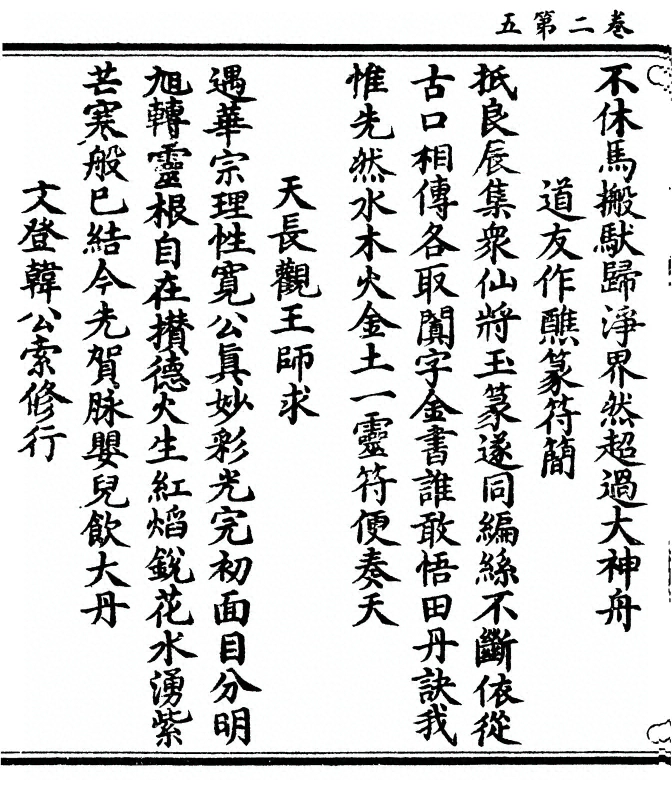 五第二卷
不休馬搬馱歸淨界然超過大神舟
道友作醮篆符簡
抵良辰集衆仙將玉篆遂同編絲不斷依從
古口相傳各取闐字金書誰敢悟田丹訣我
惟先然水木火金土一靈符便奏天
天長觀王師求
遇華宗理性寬公眞妙彩光完初面目分明
旭轉靈根自在攅德火生紅熖銳花水湧紫
芒寒般已結今先賀脉嬰兒飲大丹
文登韓公索修行